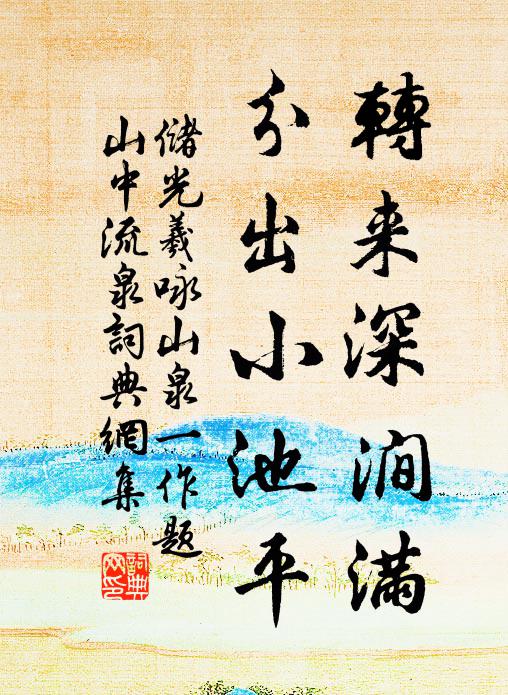 轉来深澗滿
分出小池平
儲光羲咏山泉一作題
山中流泉詞典網集
詞典
网印